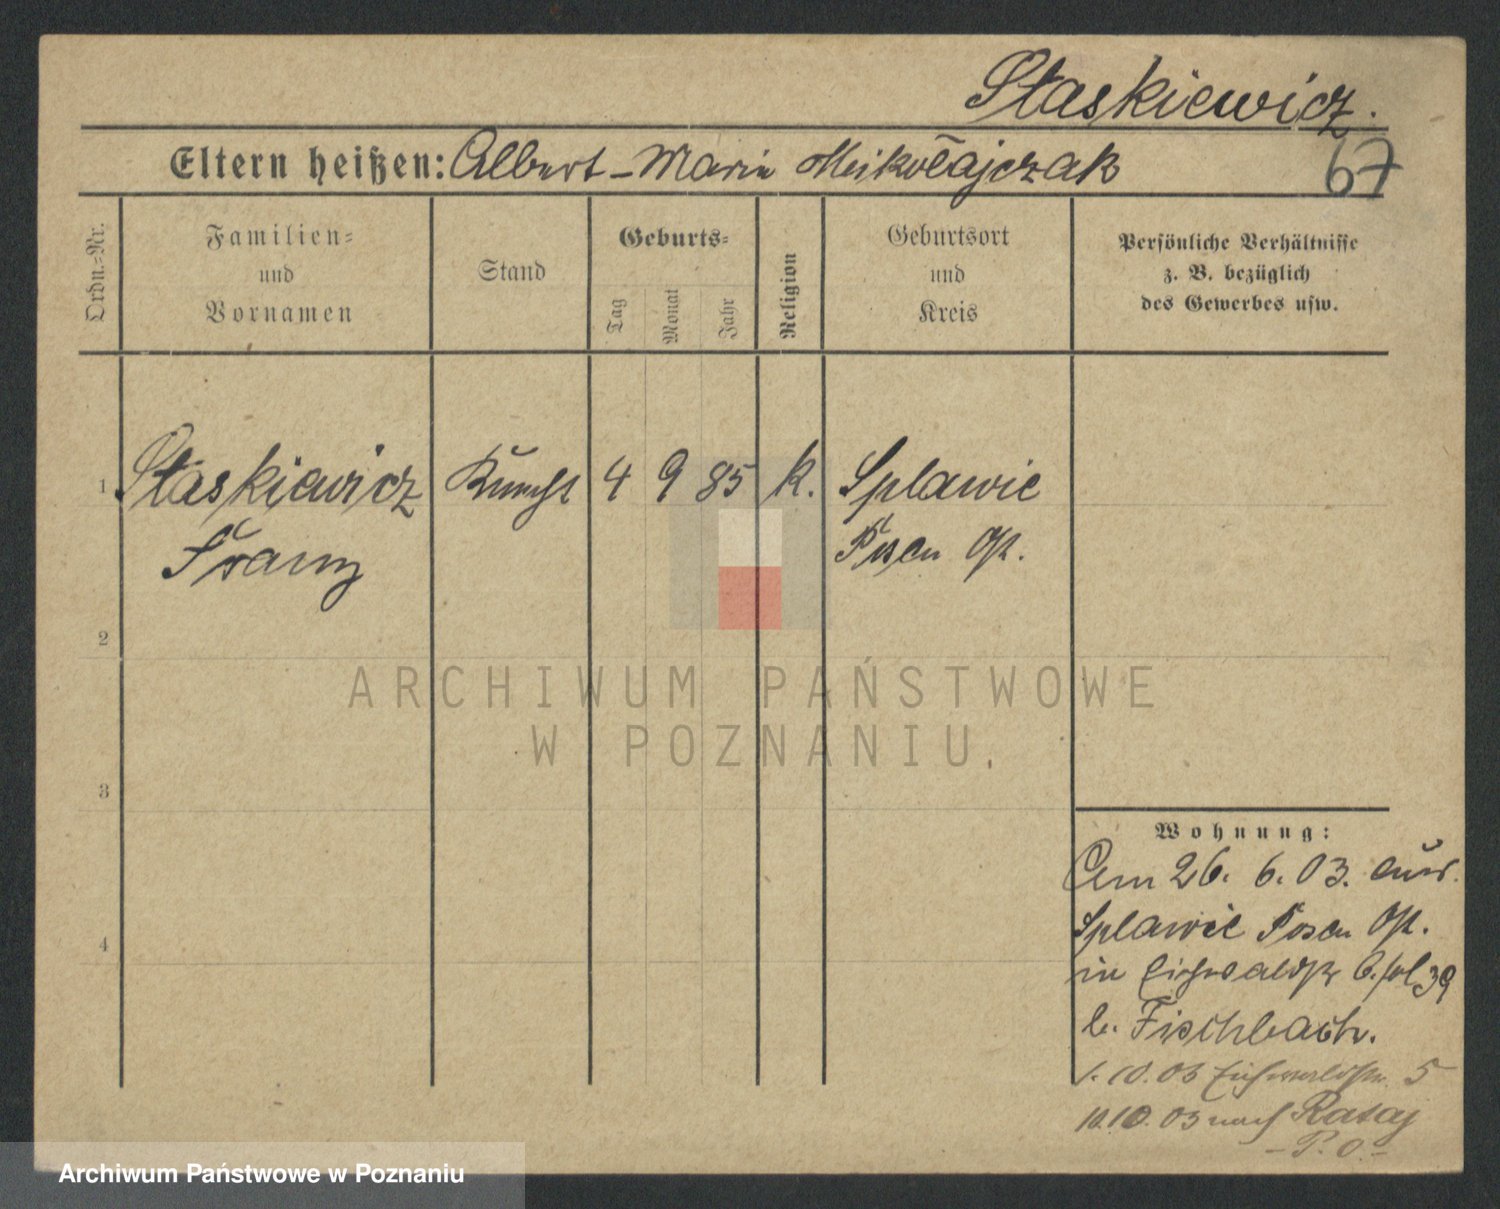 Staskiewicz.
Eltern heißen: Albert – Marie Mikołajczak
67
Ordn.-Nr.
Familien-
und
Vornamen
Stand
Geburts-
Tag
Monat
Jahr
Religion
Geburtsort
und
Kreis
Persönliche Verhältnisse
z. B. bezüglich
des Gewerbes usw.
1 Staskiewicz Knecht 4 9 85 k. Splawie
Franz Posen Ost.
2
ARCHIWUM PAŃSTWOWE
W POZNANIU
3
Wohnung:
Am 26. 6. 03. aus
Splawie Posen Ost.
4
in Eichwaldstr 39
b. Fischbach.
1.10.03 Eichwaldstr. 5
10.10.03 nach Rataj
- P. O. -
Archiwum Państwowe w Poznaniu